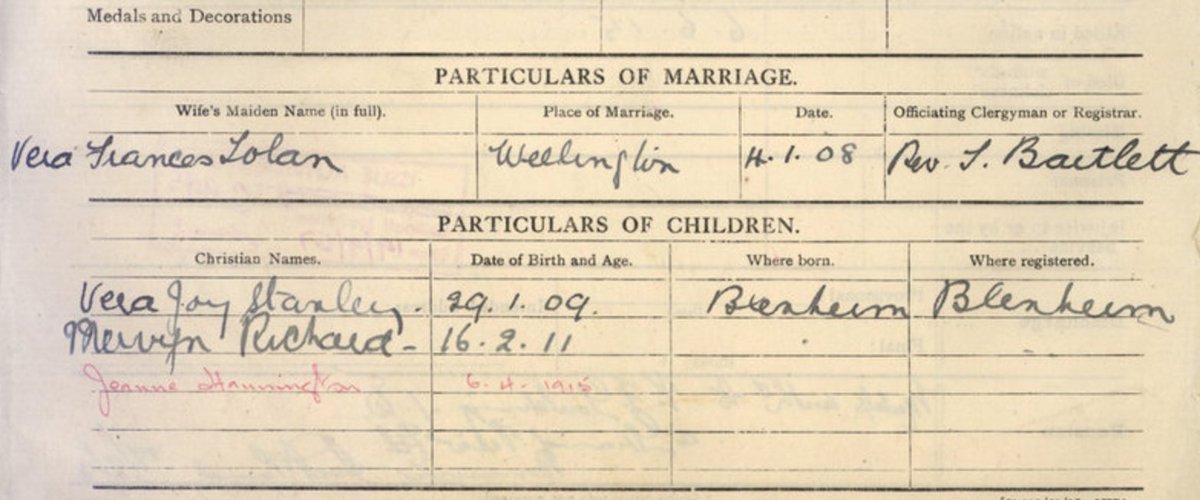 Medals and Decorations
PARTICULARS OF MARRIAGE.
Wife's Maiden Name (in full). Place of Marriage. Date. Officiating Clergyman or Registrar.
Vera Frances Tolan Wellington 4.1.08 Rev. T. Bartlett
PARTICULARS OF CHILDREN.
Christian Names. Date of Birth and Age. Where born. Where registered.
Vera Joy Stanley. 29.1.09. Blenheim Blenheim
Mervyn Richard - 16.2.11
Jeanne Hannington 6.4.1915